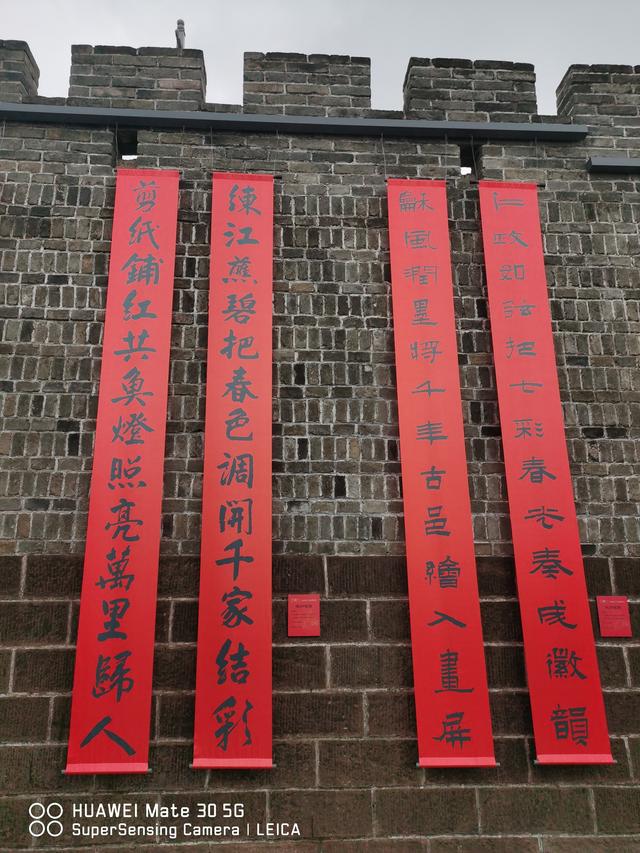 仁政如弦把七彩春光奏成徽韻
龢風潤墨將千年古邑繪入畫屏
練江蘸碧把春色調開千家結彩
剪紙鋪紅共魚燈照亮萬里歸人
HUAWEI Mate 30 5G
SuperSensing Camera | LEICA